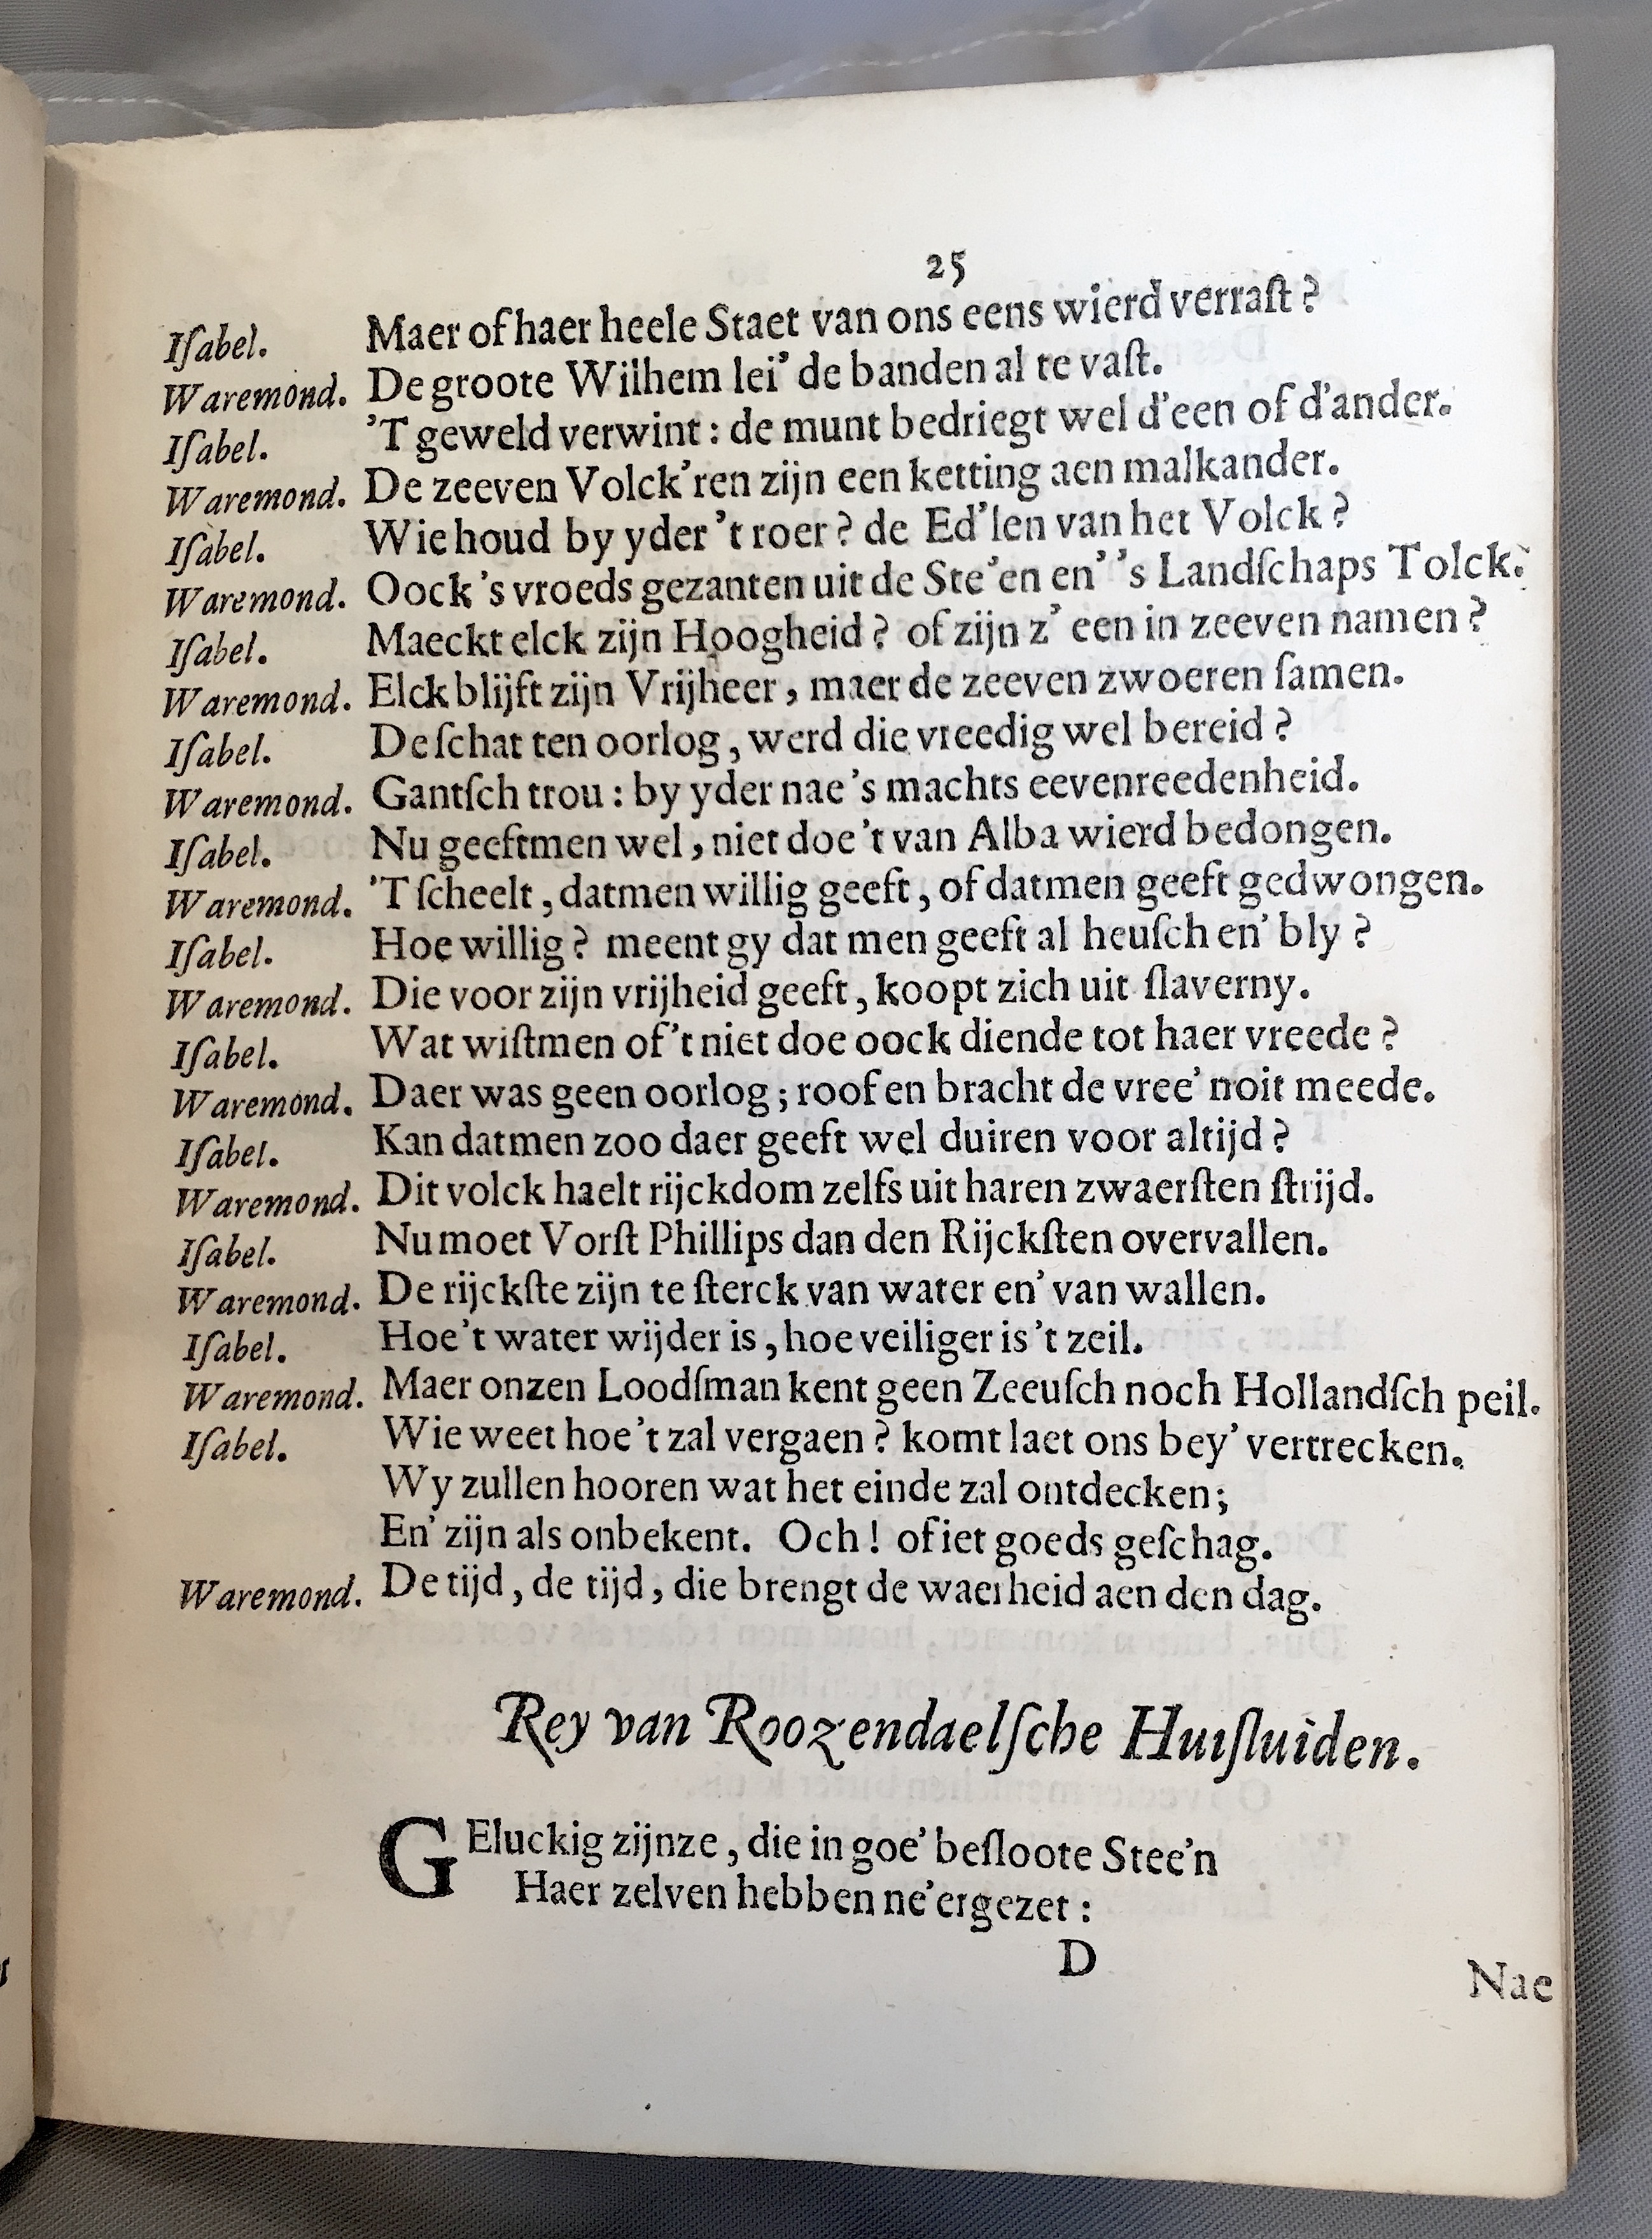 25
Iſabel. Maer of haer heele Staet van ons eens wierd verraſt?
Waremond. De groote Wilhem lei' de banden al te vaſt.
Iſabel. 'T geweld verwint: de munt bedriegt wel d'een of d'ander.
Waremond. De zeeven Volck'ren zijn een ketting aen malkander.
Iſabel. Wie houd by yder 't roer? de Ed'len van het Volck?
Waremond. Oock 's vroeds gezanten uit de Ste'en en' 's Landſchaps Tolck.
Iſabel. Maeckt elck zijn Hoogheid? of zijn z' een in zeeven namen?
Waremond. Elck blijft zijn Vrijheer, maer de zeeven zwoeren ſamen.
Iſabel. De ſchat ten oorlog, werd die vreedig wel bereid?
Waremond. Gantſch trou: by yder nae 's machts eevenreedenheid.
Iſabel. Nu geeftmen wel, niet doe 't van Alba wierd bedongen.
Waremond. 'T ſcheelt, datmen willig geeft, of datmen geeft gedwongen.
Iſabel. Hoe willig? meent gy dat men geeft al heuſch en' bly?
Waremond. Die voor zijn vrijheid geeft, koopt zich uit ſlaverny.
Iſabel. Wat wiſtmen of 't niet doe oock diende tot haer vreede?
Waremond. Daer was geen oorlog; roof en bracht de vree' noit meede.
Iſabel. Kan datmen zoo daer geeft wel duiren voor altijd?
Waremond. Dit volck haelt rijckdom zelfs uit haren zwaerſten ſtrijd.
Iſabel. Nu moet Vorſt Phillips dan den Rijckſten overvallen.
Waremond. De rijckſte zijn te ſterck van water en' van wallen.
Iſabel. Hoe 't water wijder is, hoe veiliger is 't zeil.
Waremond. Maer onzen Loodſman kent geen Zeeuſch noch Hollandſch peil.
Iſabel. Wie weet hoe 't zal vergaen? komt laet ons bey' vertrecken.
Wy zullen hooren wat het einde zal ontdecken;
En' zijn als onbekent. Och! of iet goeds geſchag.
Waremond. De tijd, de tijd, die brengt de waerheid aen den dag.
Rey van Roozendaelſche Huiſluiden.
GEluckig zijnze, die in goe' beſloote Stee'n
Haer zelven hebben ne'ergezet:
D
Nae